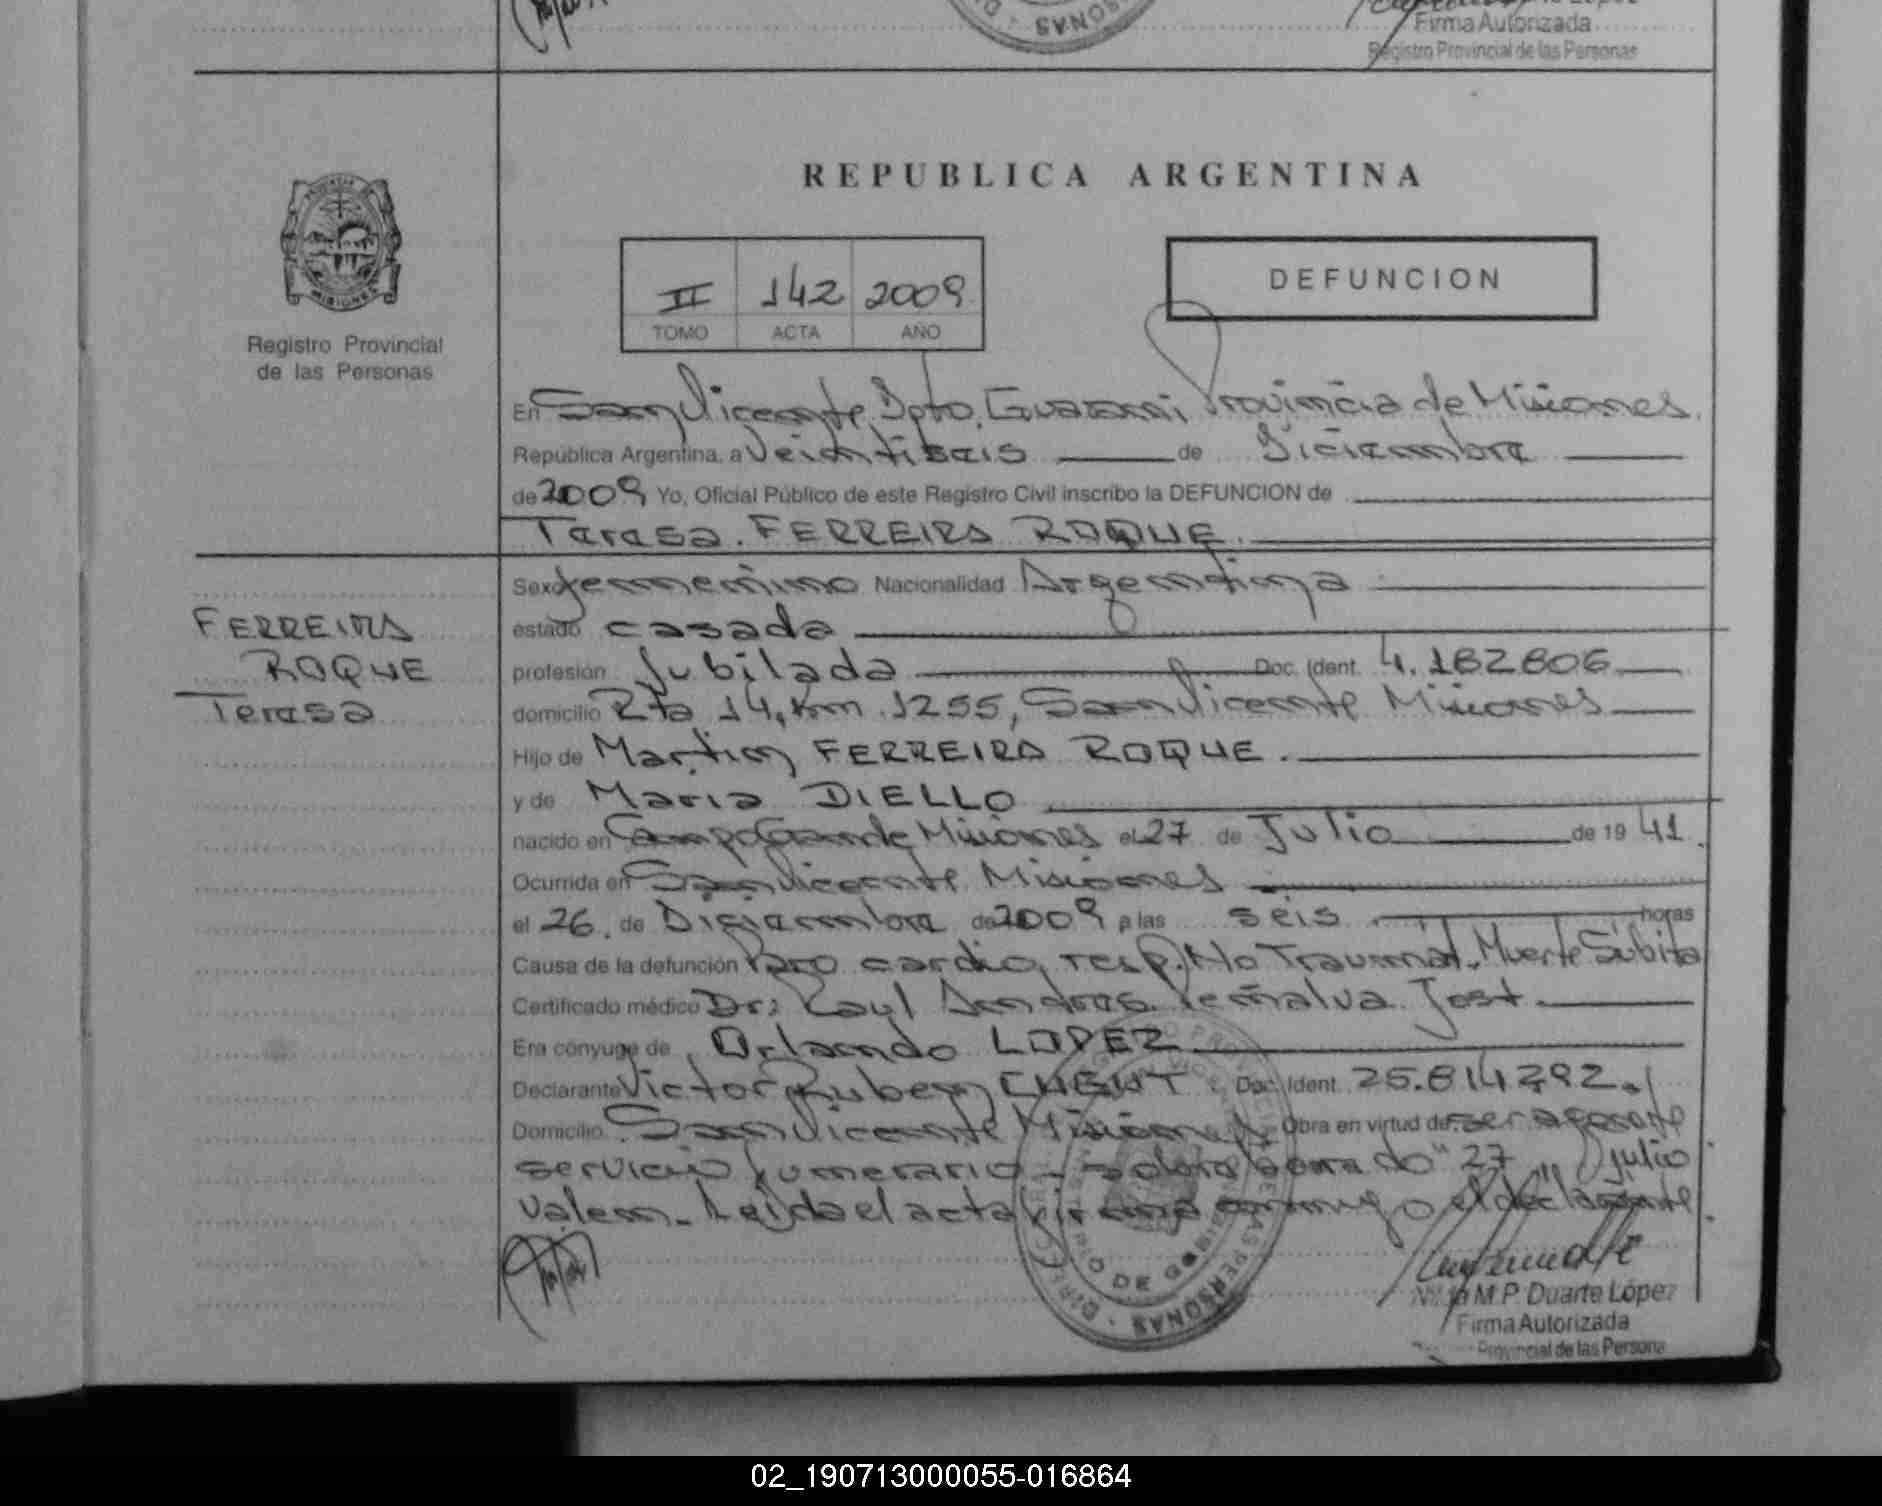 Firma Autorizada
Registro Provincial de las Personas
REPUBLICA ARGENTINA
II 142 2009
TOMO ACTA AÑO
DEFUNCION
PROVINCIA DE MISIONES
Registro Provincial
de las Personas
En San Vicente, Dpto. Guarani Provincia de Misiones
República Argentina, a Veintiseis de Diciembre
de 2009 Yo, Oficial Público de este Registro Civil inscribo la DEFUNCION de
Teresa. FERREIRA ROQUE.
FERREIRA
ROQUE
Teresa
Sexo femenino Nacionalidad Argentina
estado casada
profesión Jubilada Doc. Ident. 4.182806
domicilio Rta 14, Km. 1255, San Vicente Misiones
Hijo de Martin FERREIRA ROQUE.
y de Maria DIELLO
nacido en Campo Grande Misiones el 27 de Julio de 19 41.
Ocurrida en San Vicente Misiones
el 26. de Diciembre de 2009 a las seis horas
Causa de la defunción Paro cardio, resp. No Traumat. Muerte Súbita
Certificado médico Dr: Raul Andres Peñalva Jost.
Era cónyuge de Orlando LOPEZ
Declarante Victor Ruben Doc. Ident. 25.814292.
Domicilio San Vicente Misiones Obra en virtud de ser agente
servicio funerario - sobre borrado "27", "Julio
valen. Leida el acta firma conmigo el declarante
M.P. Duarte López
Firma Autorizada
Provincial de las Persona
02_190713000055-016864